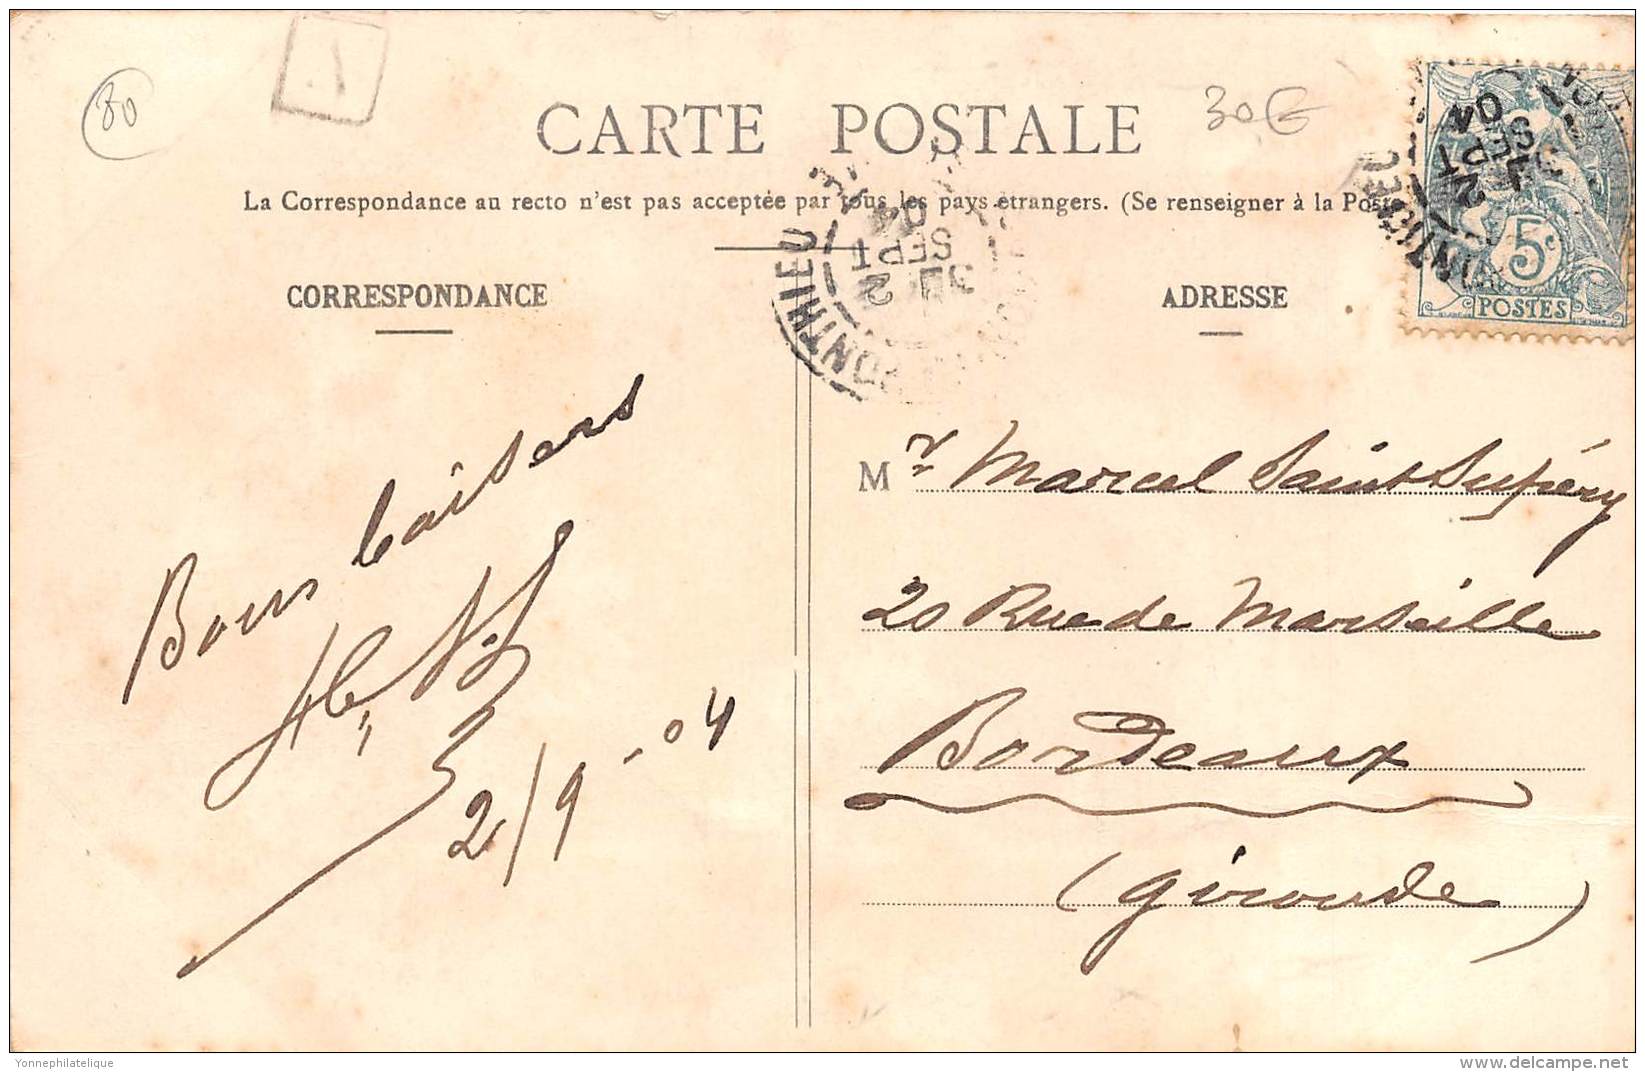 80
30€
CARTE POSTALE
La Correspondance au recto n'est pas acceptée par tous les pays étrangers. (Se renseigner à la Poste
CORRESPONDANCE
ADRESSE
PONTHIEU
3E
2
SEPT
04
3E
2
SEPT
04
5c
POSTES
Bons baisers
2/9-04
Mr Marcel Saint Supéry
20 Rue de Marseille
Bordeaux
(Gironde)
Yonnephilatelique
delcampe.net